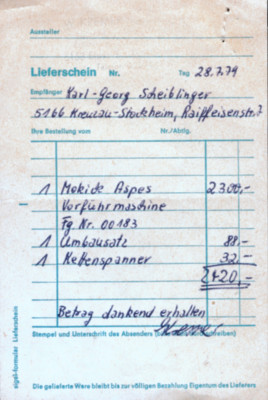 Aussteller
Lieferschein Nr. Tag 28.7.79
Empfänger Karl-Georg Scheiblinger
5166 Kreuzau-Stockheim, Raiffeisenstr.
Ihre Bestellung vom Nr./Abtlg.
1 Mokick Aspes 2300,-
Vorführmaschine
Fg. Nr. 00183
1 Umbausatz 88,-
1 Kettenspanner 32,-
2420,-
Betrag dankend erhalten
Stempel und Unterschrift des Absenders
Die gelieferte Ware bleibt bis zur völligen Bezahlung Eigentum des Lieferers
eigah-formular Lieferschein